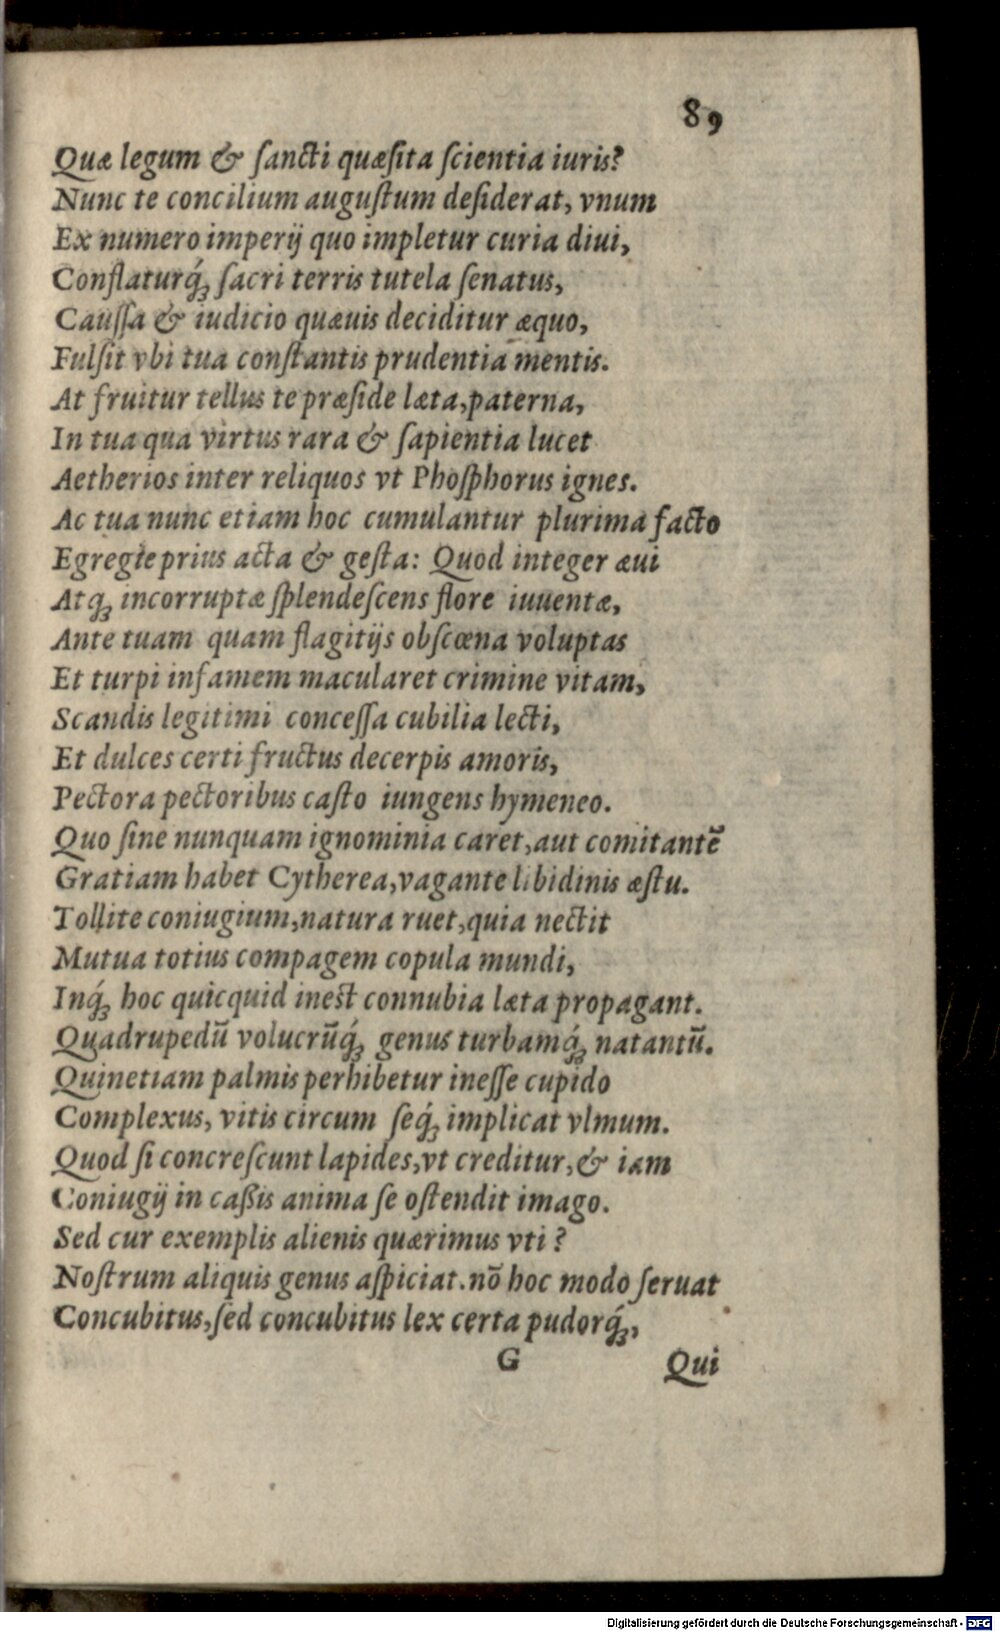 89
Quæ legum & ſancti quæſita ſcientia iuris?
Nunc te concilium auguſtum deſiderat, vnum
Ex numero imperij quo impletur curia diui,
Conflaturq́ꝫ ſacri terris tutela ſenatus,
Cauſſa & iudicio quæuis deciditur æquo,
Fulſit vbi tua conſtantis prudentia mentis.
At fruitur tellus te præſide læta,paterna,
In tua qua virtus rara & ſapientia lucet
Aetherios inter reliquos vt Phoſphorus ignes.
Ac tua nunc etiam hoc cumulantur plurima facto
Egregie prius acta & geſta: Quod integer æui
Atqꝫ incorruptæ ſplendeſcens flore iuuentæ,
Ante tuam quam flagitijs obſcœna voluptas
Et turpi infamem macularet crimine vitam,
Scandis legitimi conceſſa cubilia lecti,
Et dulces certi fructus decerpis amoris,
Pectora pectoribus caſto iungens hymeneo.
Quo ſine nunquam ignominia caret,aut comitantē
Gratiam habet Cytherea,vagante libidinis æſtu.
Tollite coniugium,natura ruet,quia nectit
Mutua totius compagem copula mundi,
Inq́ꝫ hoc quicquid ineſt connubia læta propagant.
Quadrupedū volucrūq́ꝫ genus turbamq́ꝫ natantū.
Quinetiam palmis perhibetur ineſſe cupido
Complexus, vitis circum ſeq́ꝫ implicat vlmum.
Quod ſi concreſcunt lapides,vt creditur,& iam
Coniugij in caßis anima ſe oſtendit imago.
Sed cur exemplis alienis quærimus vti?
Noſtrum aliquis genus aſpiciat.nō hoc modo ſeruat
Concubitus,ſed concubitus lex certa pudorq́ꝫ,
G Qui
Digitalisierung gefördert durch die Deutsche Forschungsgemeinschaft - DFG